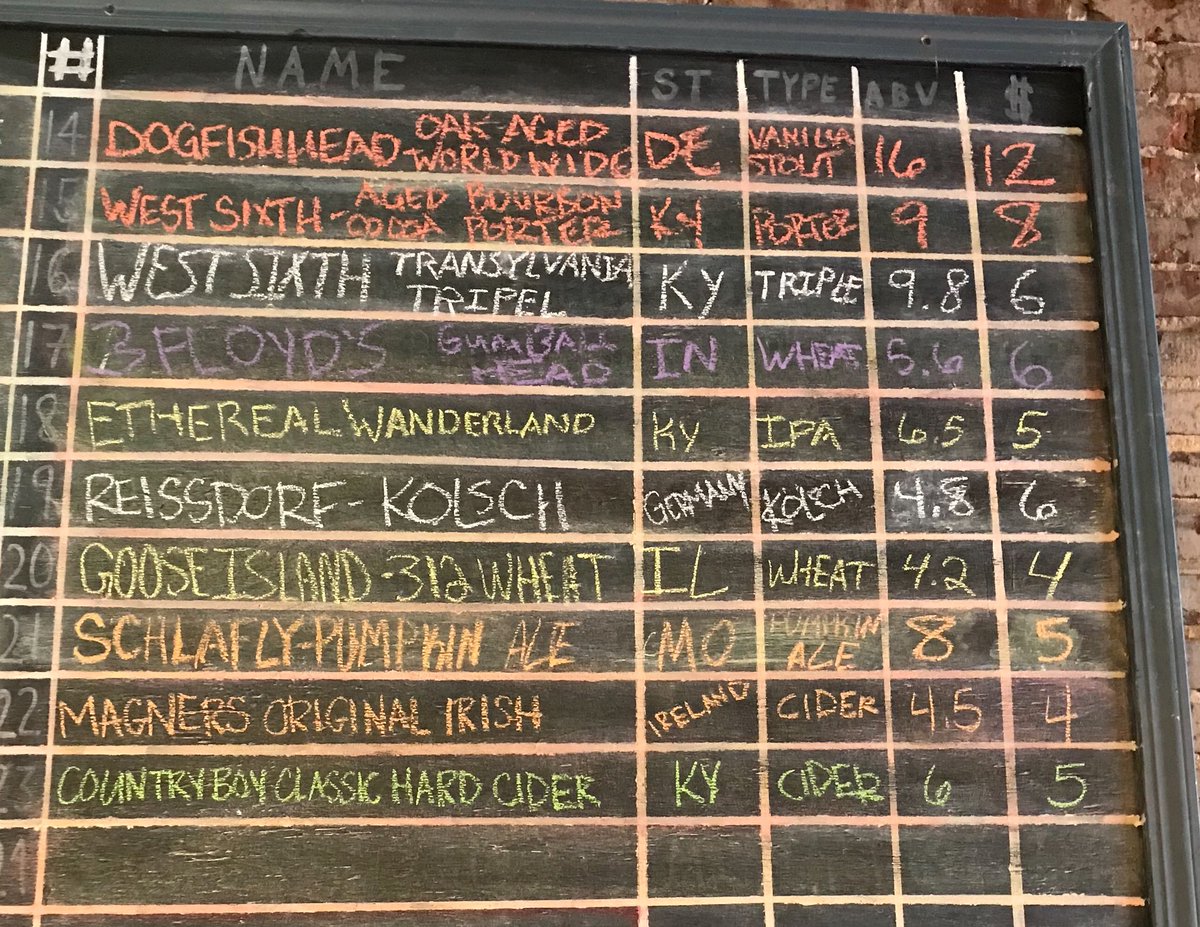 # NAME ST TYPE ABV $
14 DOGFISHHEAD OAK-AGED WORLD WIDE DE VANILLA STOUT 16 12
15 WEST SIXTH - AGED BOURBON COCOA PORTER KY PORTER 9 8
16 WEST SIXTH TRANSYLVANIA TRIPEL KY TRIPLE 9.8 6
17 3 FLOYD'S GUMBALL HEAD IN WHEAT 5.6 6
18 ETHEREAL WANDERLAND KY IPA 6.5 5
19 REISSDORF - KOLSCH GERMANY KOLSCH 4.8 6
20 GOOSE ISLAND - 312 WHEAT IL WHEAT 4.2 4
21 SCHLAFLY-PUMPKIN ALE MO PUMPKIN ALE 8 5
22 MAGNERS ORIGINAL IRISH IRELAND CIDER 4.5 4
23 COUNTRY BOY CLASSIC HARD CIDER KY CIDER 6 5
24